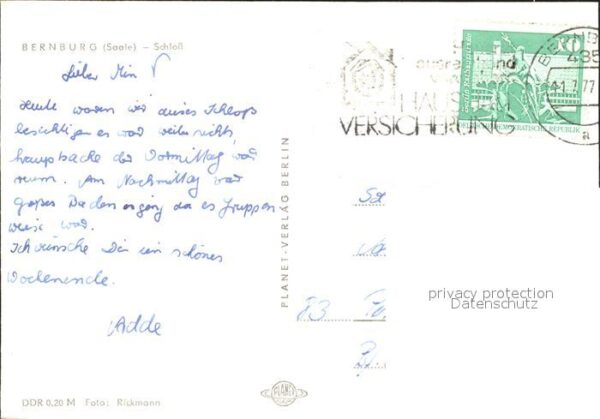 BERNBURG (Saale) – Schloß
Lieber
Heute waren wir dieses Schloß
besichtigen es war weiter nicht,
hauptsache der Vormittag war
rum. Am Nachmittag war
großes Baden da es Gruppen
weise war.
Ich wünsche Dir ein schönes
Wochenende.
PLANET-VERLAG BERLIN
HAUS
VERSICHERUNG
10
DEUTSCHE DEMOKRATISCHE REPUBLIK
BERNB
435
-1.7.77
a
83
privacy protection
Datenschutz
DDR 0,20 M Foto: Rickmann
PLANET